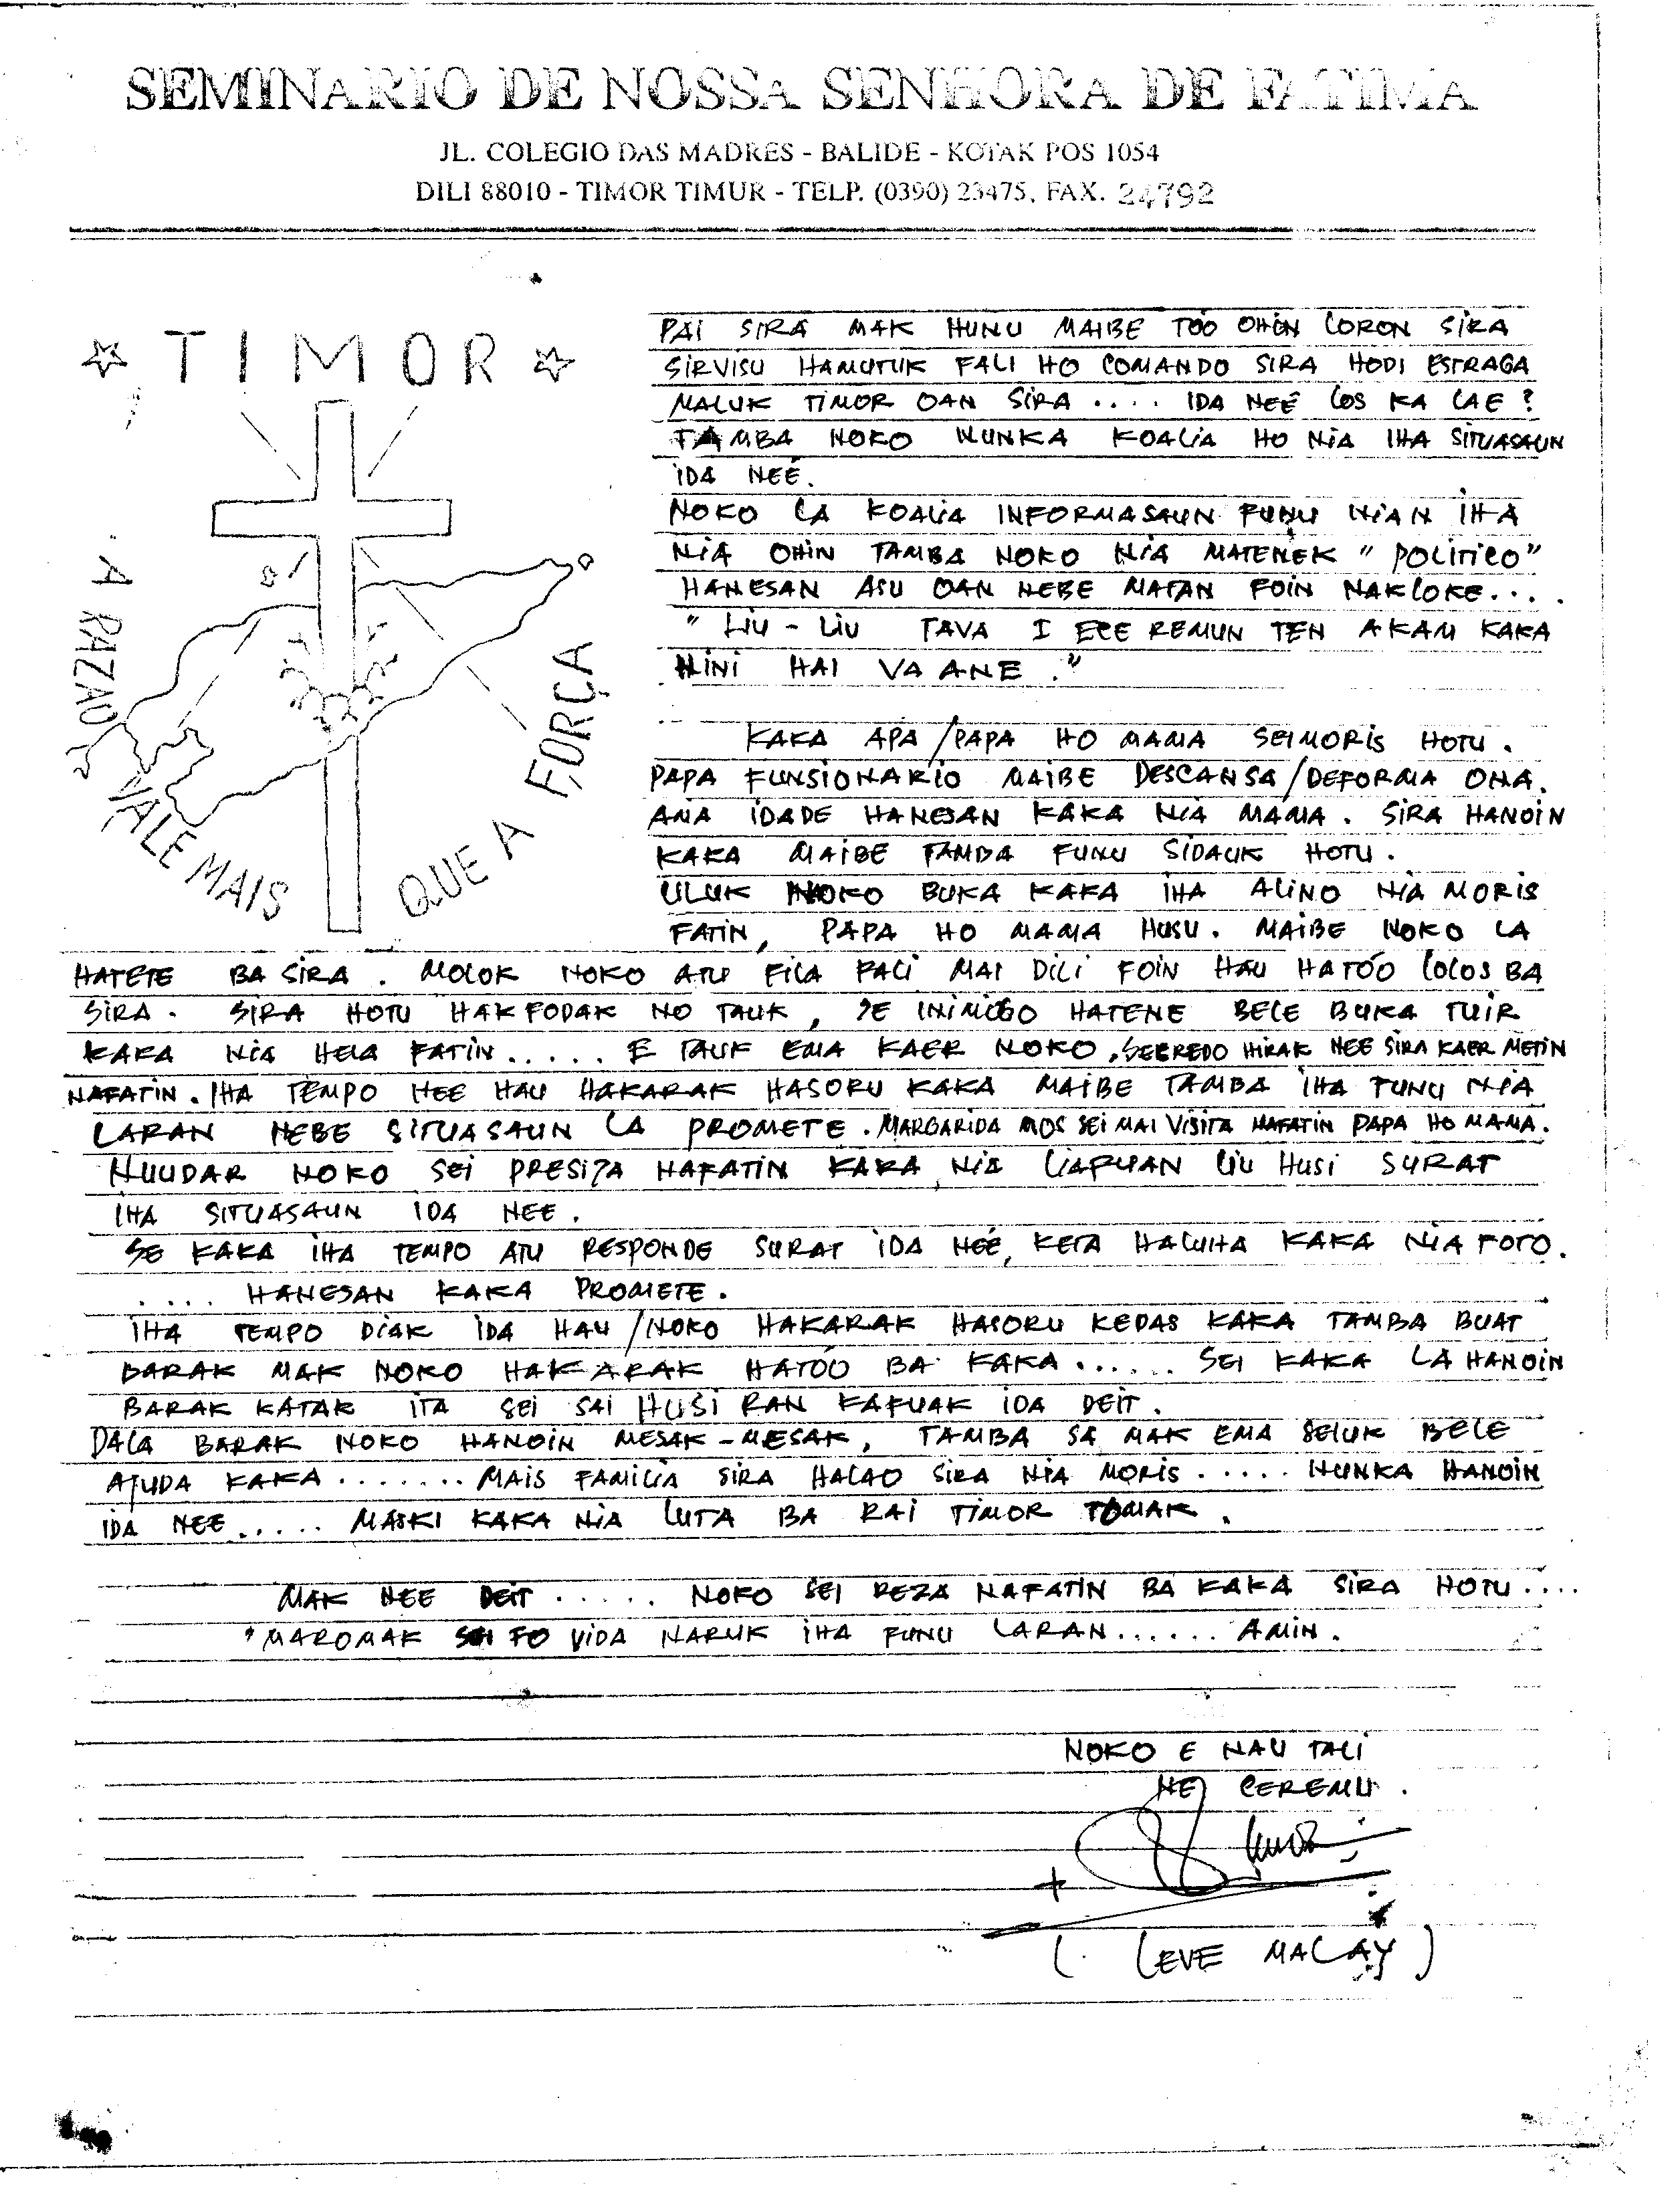 SEMINARIO DE NOSSA SENHORA DE FATIMA
JL. COLEGIO DAS MADRES - BALIDE - KOTAK POS 1054
DILI 88010 - TIMOR TIMUR - TELP. (0390) 23475, FAX. 24792
TIMOR
A RAZAO VALE MAIS QUE A FORÇA
PAI SIRA MAK HUNU MAIBE TOO OHIN LORON SIRA
SIRVISU HAMUTUK FALI HO COMANDO SIRA HODI ESTRAGA
MALUK TIMOR OAN SIRA .... IDA NEÉ LOS KA LAE ?
TAMBA NOKO NUNKA KOALIA HO NIA IHA SITUASAUN
IDA NEÉ.
NOKO LA KOALIA INFORMASAUN FUNU NIAN IHA
NIA OHIN TAMBA NOKO NIA MATENEK " POLITICO"
HANESAN ASU OAN NEBE MATAN FOIN NAKLOKE....
" LIU - LIU TAVA I ECE REMUN TEN AKAM KAKA
NINI HAI VA ANE ."
KAKA APA/PAPA HO MAMA SEIMORIS HOTU.
PAPA FUNSIONARIO MAIBE DESCANSA/DEFORMA ONA.
AMA IDADE HANESAN KAKA NIA MAMA. SIRA HANOIN
KAKA MAIBE TAMBA FUNU SIDAUK HOTU.
ULUK NOKO BUKA KAKA IHA ALINO NIA MORIS
FATIN, PAPA HO MAMA HUSU. MAIBE NOKO LA
HATETE BA SIRA. MOLOK NOKO ATU FILA FALI MAI DILI FOIN HAU HATÓO LOLOS BA
SIRA. SIRA HOTU HAKFODAK NO TAUK, SE INIMIGO HATENE BELE BUKA TUIR
KAKA NIA HELA FATIN..... E TAUK EMA KAER NOKO. SEGREDO HIRAK NEE SIRA KAER METIN
NAFATIN. IHA TEMPO NEE HAU HAKARAK HASORU KAKA MAIBE TAMBA IHA FUNU NIA
LARAN NEBE SITUASAUN LA PROMETE. MARGARIDA MOS SEI MAI VISITA NAFATIN PAPA HO MAMA.
NUUDAR NOKO SEI PRESIZA NAFATIN KAKA NIA LIAFUAN LIU HUSI SURAT
IHA SITUASAUN IDA NEE.
SE KAKA IHA TEMPO ATU RESPONDE SURAT IDA NEÉ, KETA HALUHA KAKA NIA FOTO.
.... HANESAN KAKA PROMETE.
IHA TEMPO DIAK IDA HAU/NOKO HAKARAK HASORU KEDAS KAKA TAMBA BUAT
BARAK MAK NOKO HAKARAK HATÓO BA KAKA...... SEI KAKA LA HANOIN
BARAK KATAK ITA SEI SAI HUSI RAN KAFUAK IDA DEIT.
DALA BARAK NOKO HANOIN MESAK-MESAK, TAMBA SA MAK EMA SELUK BELE
AJUDA KAKA ....... MAIS FAMILIA SIRA HALAO SIRA NIA MORIS ..... NUNKA HANOIN
IDA NEE..... MASKI KAKA NIA LUTA BA RAI TIMOR TOMAK.
MAK NEE DEIT ...... NOKO SEI REZA NAFATIN BA KAKA SIRA HOTU....
"MAROMAK SEI FO VIDA NARUK IHA FUNU LARAN...... AMIN.
NOKO E NAU TALI
NEJ CEREMU.
( LEVE MALAY )